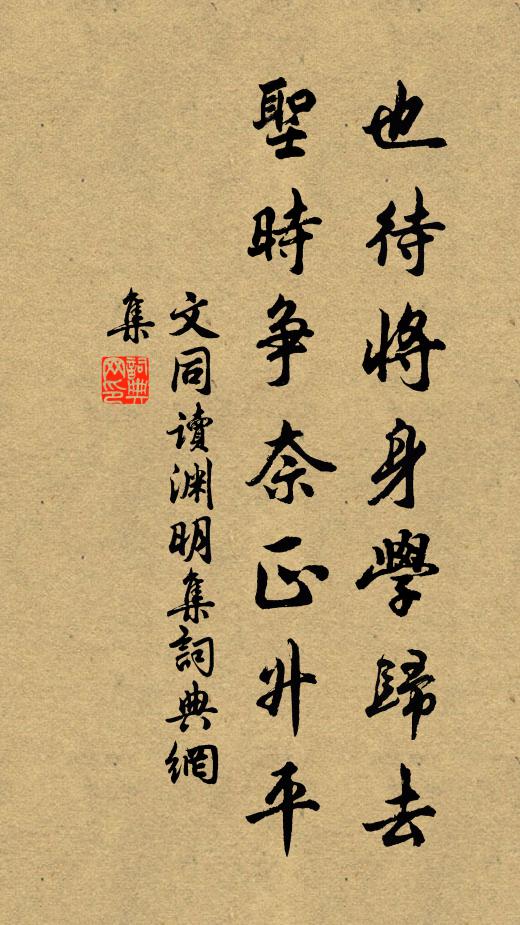 也待將身學歸去
聖時爭奈正升平
文同讀渊明集詞典網
集
詞典
网印